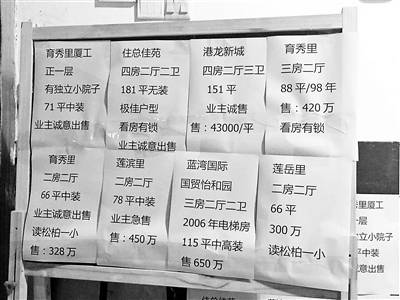 育秀里厦工
正一层
有独立小院子
71平中装
业主诚意出售
住总佳苑
四房二厅二卫
181平无装
极佳户型
看房有锁
业主诚意出售
港龙新城
四房二厅三卫
151平
业主诚售
售：43000/平
育秀里
三房二厅
88平/98年
售：420万
看房有锁
育秀里
二房二厅
66平中装
业主诚意出售
读松柏一小
售：328万
莲滨里
二房二厅
78平中装
业主急售
售：450万
蓝湾国际
国贸怡和园
三房二厅二卫
2006年电梯房
115平中高装
售650万
莲岳里
二房二厅
66平
300万
读松柏一小
育秀里厦工
一层
独立小院子
平中装